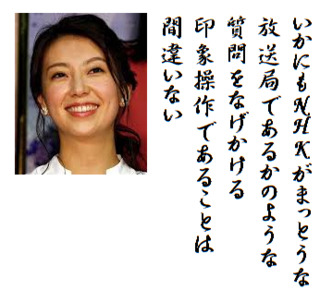 いかにもNHKがまっとうな
放送局であるかのような
質問をなげかける
印象操作であることは
間違いない